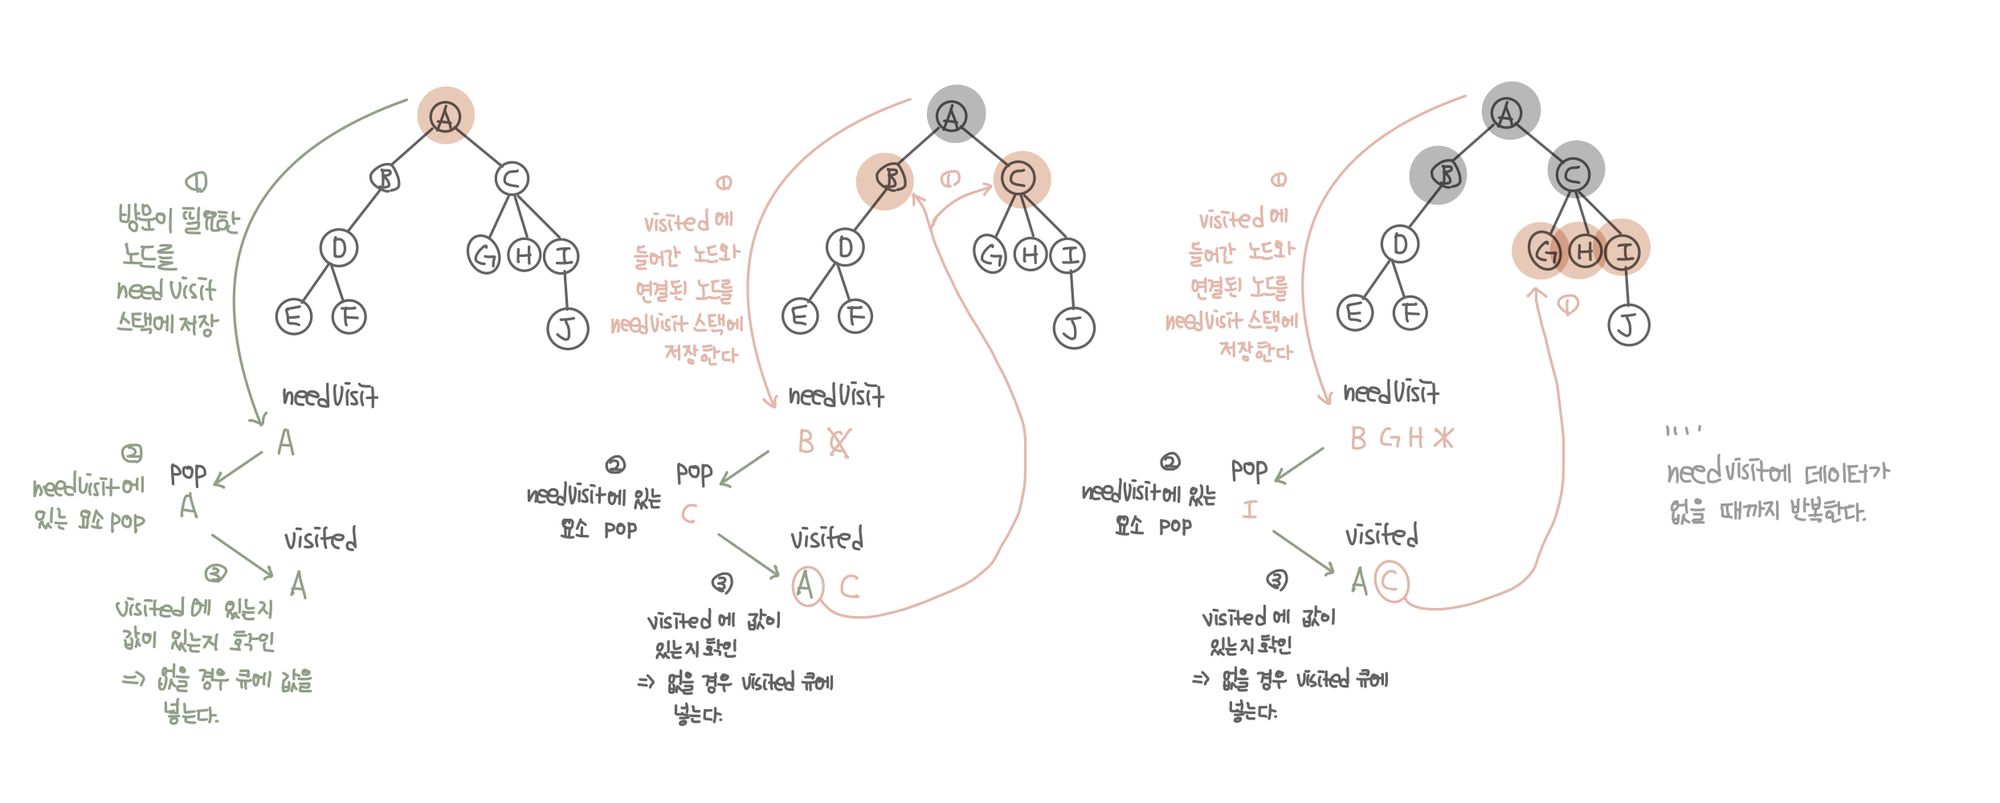 A
B
C
D
G
H
I
E
F
J
①
방문이 필요한
노드를
need Visit
스택에 저장
needVisit
A
②
needVisit에
있는 요소 pop
pop
A
visited
A
③
visited에 있는지
값이 있는지 확인
=> 없을 경우 큐에 값을
넣는다.
A
B
C
①
D
G
H
I
E
F
J
①
visited에
들어간 노드와
연결된 노드를
needVisit 스택에
저장한다
needVisit
B C
②
needVisit에 있는
요소 pop
pop
C
visited
A C
③
visited에 값이
있는지 확인
=> 없을 경우 visited 큐에
넣는다.
A
B
C
D
G
H
I
①
E
F
J
①
visited에
들어간 노드와
연결된 노드를
needVisit 스택에
저장한다
needVisit
B G H I
②
needVisit에 있는
요소 pop
pop
I
visited
A C
③
visited에 값이
있는지 확인
=> 없을 경우 visited 큐에
넣는다.
need visit에 데이터가
없을 때까지 반복한다.